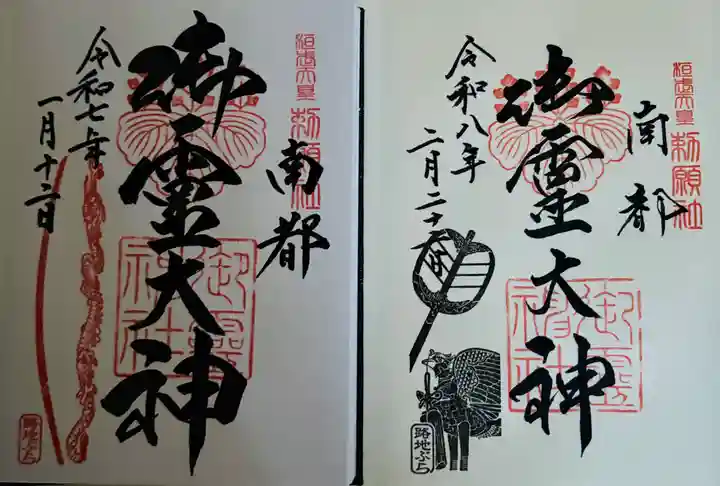 桓武天皇
勅願社
南都
御霊大神
御霊神社
令和七年
一月十二日
路地ぶら
桓武天皇
勅願社
南都
御霊大神
御霊神社
令和八年
二月二十
路地ぶら